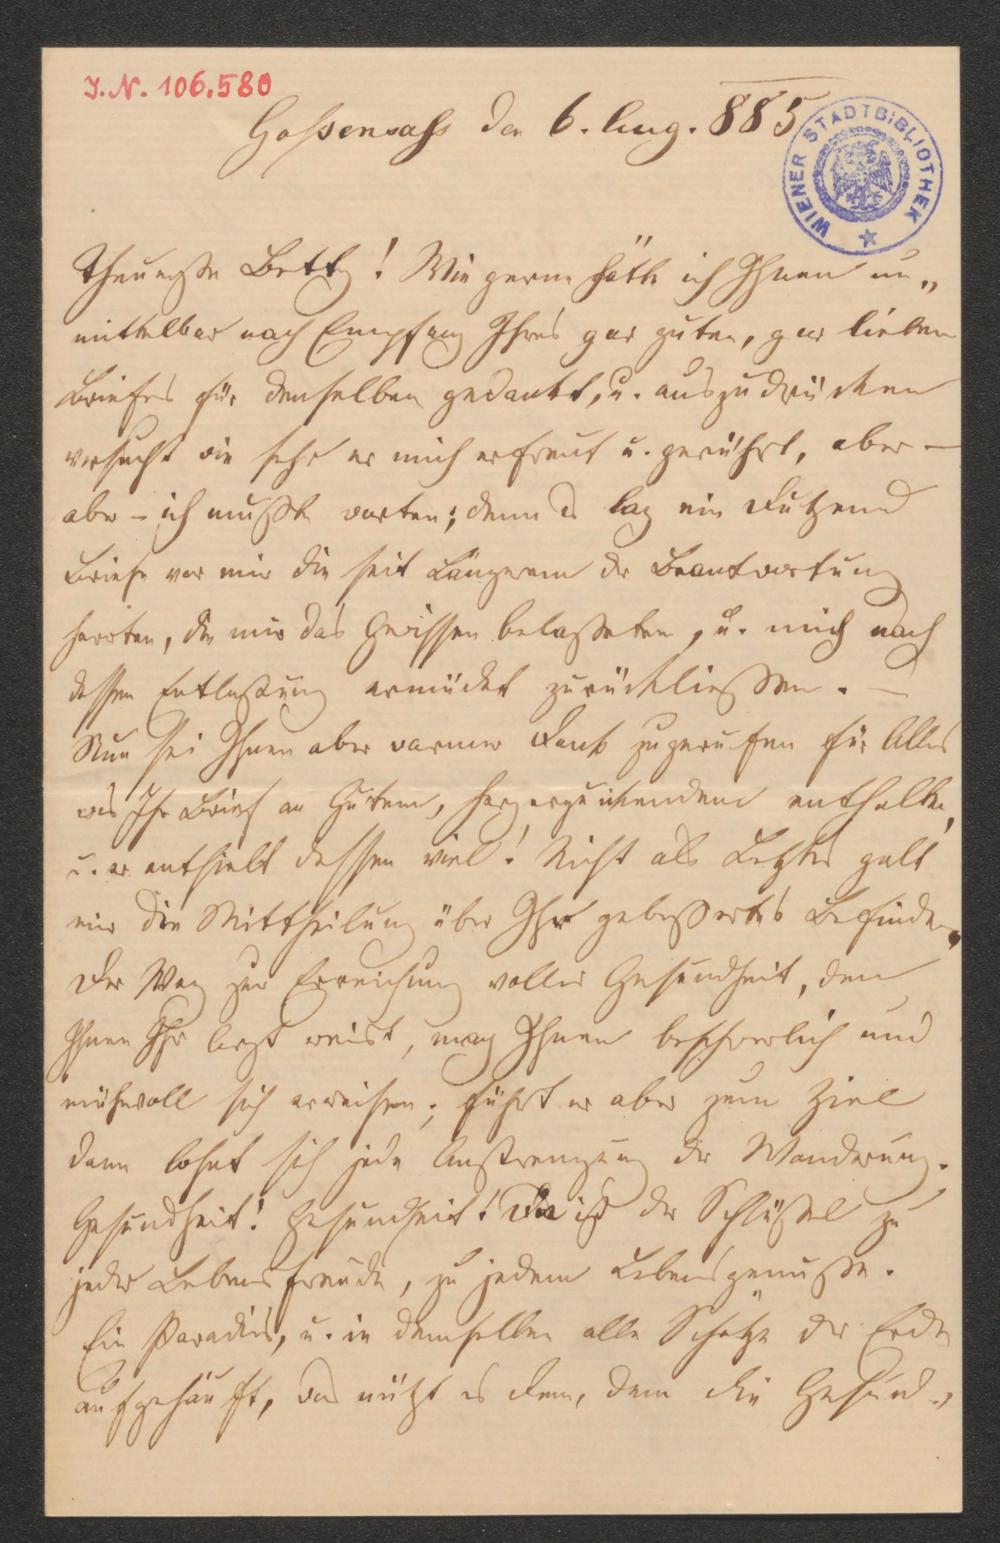 J.N. 106.580
Gossensass den 6. Aug. 885
WIENER STADTBIBLIOTHEK
Theuerste Betty! Wie gerne hätte ich Ihnen un„
mittelbar nach Empfang Ihres gar guten, gar lieben
Briefes für denselben gedankt, u. auszudrücken
versucht wie sehr er mich erfreut u. gerührt, aber —
aber – ich mußte warten; denn es lag ein Dutzend
Briefe vor mir die seit Längerem der Beantwortung
harrten, die mir das Gewissen belasteten, u. mich nach
dessen Entlastung ermüdet zurückließen. —
Nun sei Ihnen aber warmer Dank zugerufen für Alles
was Ihr Brief an Gutem, herzerquickendem enthalten,
u. er enthielt dessen viel! Nicht als Letztes galt
mir die Mittheilung über Ihr gebessertes Befinden.
Der Weg zur Erreichung voller Gesundheit, den
Ihnen Ihr Arzt weist, mag Ihnen beschwerlich und
mühevoll sich erweisen; führt er aber zum Ziel
dann lohnt sich jede Anstrengung der Wanderung.
Gesundheit! Gesundheit! Sie ist der Schlüssel zu
jeder Lebensfreude, zu jedem Lebensgenusse.
Ein Paradies, u. in demselben alle Schätze der Erde
aufgehäuft, was nützt es dem, dem die Gesund„